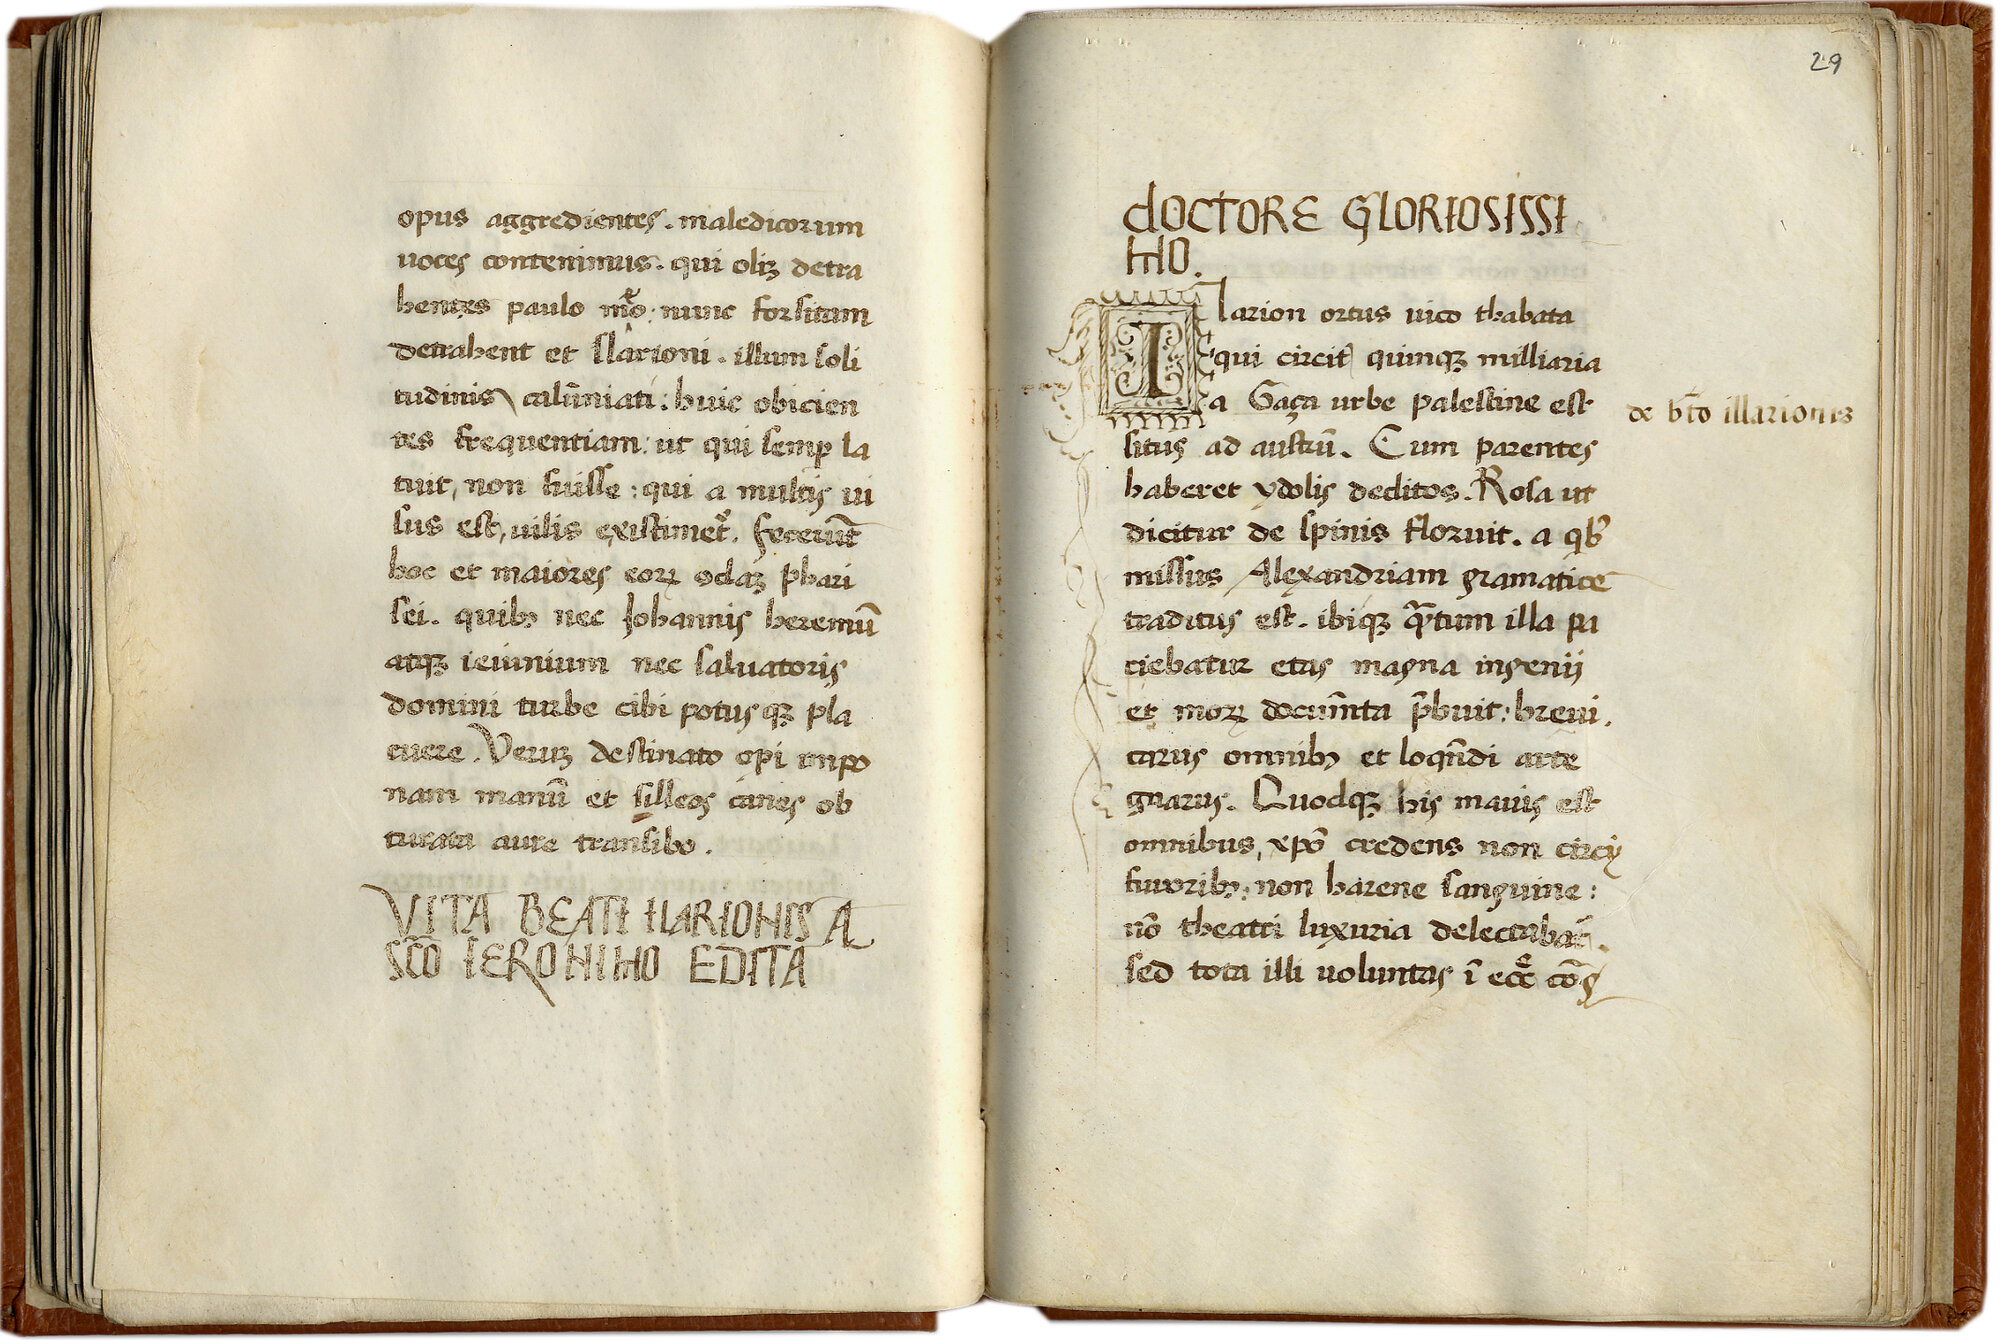 opus aggredientes. maledicorum
uoces contemnimus. qui oliꝫ detra
hentes paulo mẽo: nunc forsitam
detrahent et Ilarioni. illum soli
tudinis calũniati: huic obicien
tes frequentiam: ut qui semꝑ la
tuit, non fuisse: qui a multis ui
sus est, uilis existimet᷑. fecerũt
hoc et maiores eoꝝ ꝙdaꝫ phari
sei. quibꝫ nec Iohannis heremũ
atqꝫ ieiunium nec saluatoris
domini turbe cibi potusqꝫ pla
cuere. Veruꝫ destinato opi impo
nam manũ et silleos canes ob
turata aure transibo.
VITA BEATI ILARIONIS A
SC̃O IERONIMO EDITA
29
DOCTORE GLORIOSISSI
MO.
Ilarion ortus uico thabata
qui circit quinqꝫ milliaria
a Gaça urbe palestine est
de bt̃o illarionis
situs ad austrũ. Cum parentes
haberet ydolis deditos. Rosa ut
dicitur de spinis floruit. a qbꝰ
missus Alexandriam gramatice
traditus est. ibiqꝫ qᷓtum illa pa
ciebatur etas magna ingenii
et moꝝ documẽta p̃buit: breui.
carus omnibꝫ et loqñdi arte
gnarus. Quodqꝫ his maius est
omnibus, xpõ credens non circy
furoribꝫ: non harene sanguine:
nõ theatri luxuria delectabat᷑.
sed tota illi uoluntas ĩ eccẽ cõg